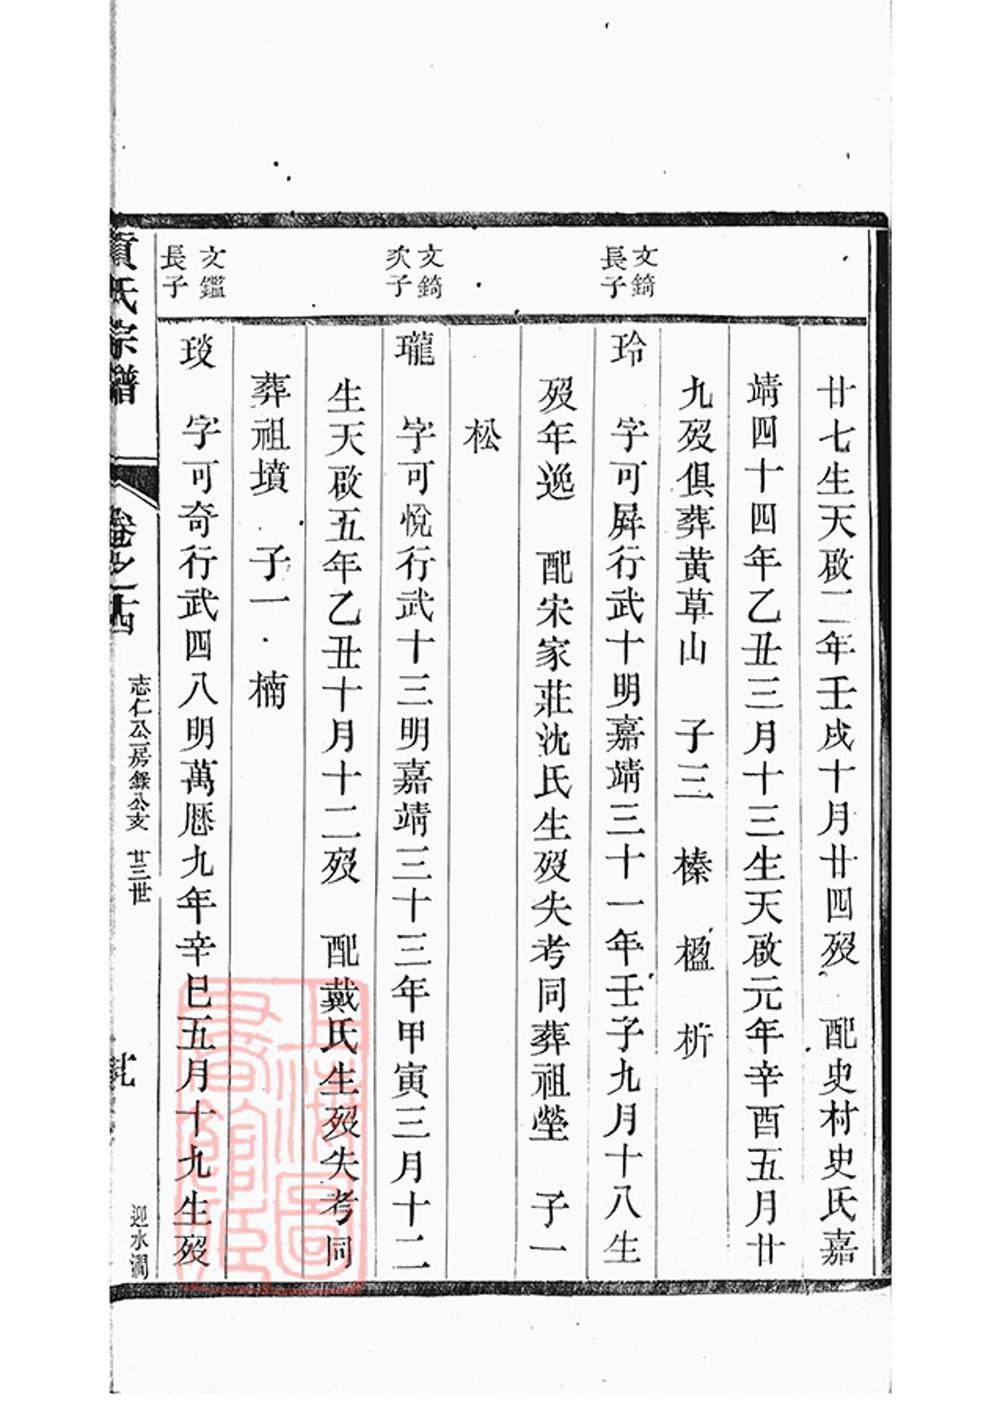 廿七生天啟二年壬戌十月廿四歿　配史村史氏嘉
靖四十四年乙丑三月十三生天啟元年辛酉五月廿
九歿俱葬黃草山　子三　榛　楹　析
文錡長子
玲　字可屏行武十明嘉靖三十一年壬子九月十八生
歿年逸　配宋家莊沈氏生歿失考同葬祖塋　子一
松
文錡次子
瓏　字可悅行武十三明嘉靖三十三年甲寅三月十二
生天啟五年乙丑十月十二歿　配戴氏生歿失考同
葬祖墳　子一　楠
文鑑長子
琰　字可奇行武四八明萬厯九年辛巳五月十九生歿
貢氏宗譜
卷之十四
志仁公房錄公支　廿三世
迎水澗
上海圖書館藏